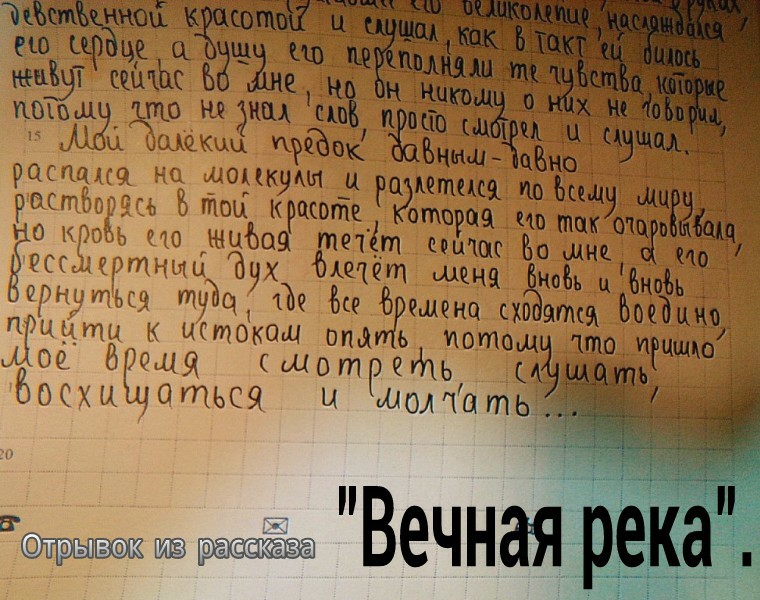 его великолепие, наслаждался
девственной красотой и слушал, как в такт ей билось
его сердце, а душу его переполняли те чувства, которые
живут сейчас во мне, но он никому о них не говорил,
потому что не знал слов, просто смотрел и слушал.
15 Мой далёкий предок давным-давно
распался на молекулы и разлетелся по всему миру,
растворясь в той красоте, которая его так очаровывала,
но кровь его живая течёт сейчас во мне, а его
бессмертный дух влечёт меня вновь и вновь
вернуться туда, где все времена сходятся воедино,
прийти к истокам опять, потому что пришло
моё время смотреть, слушать,
восхищаться и молчать...
20
Отрывок из рассказа "Вечная река".